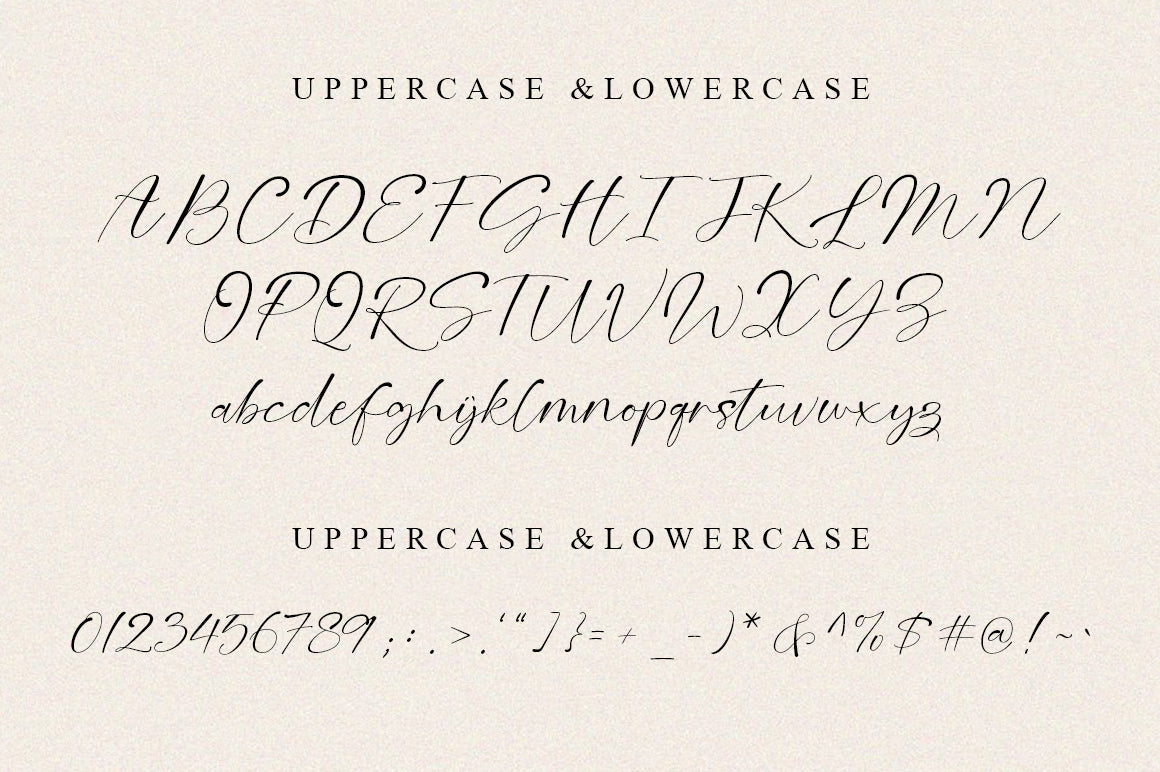 UPPERCASE &LOWERCASE
ABCDEFGHIJKLMN
OPQRSTUVWXYZ
abcdefghijklmnopqrstuvwxyz
UPPERCASE &LOWERCASE
0123456789;:.>.‘“]}=+_-)*&^%$#@!~`